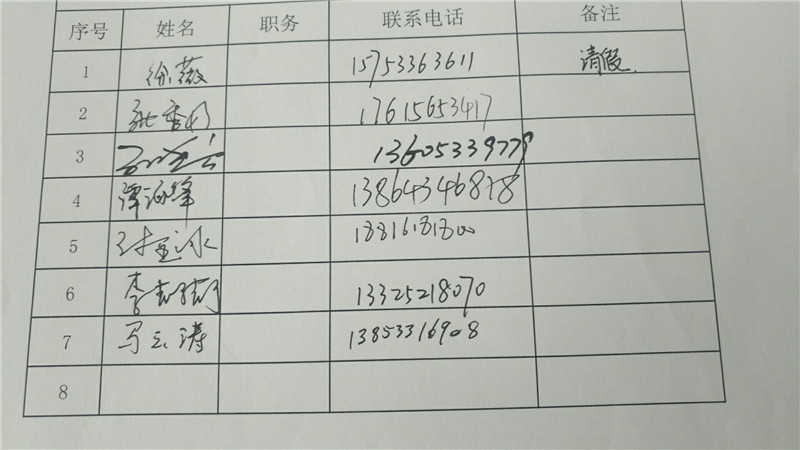 序号 姓名 职务 联系电话 备注
1 徐薇 15753363611 请假
2 17615653417
3 13605333977
4 谭海峰 13864346878
5 18816181800
6 李 13325218070
7 马云涛 13853316908
8